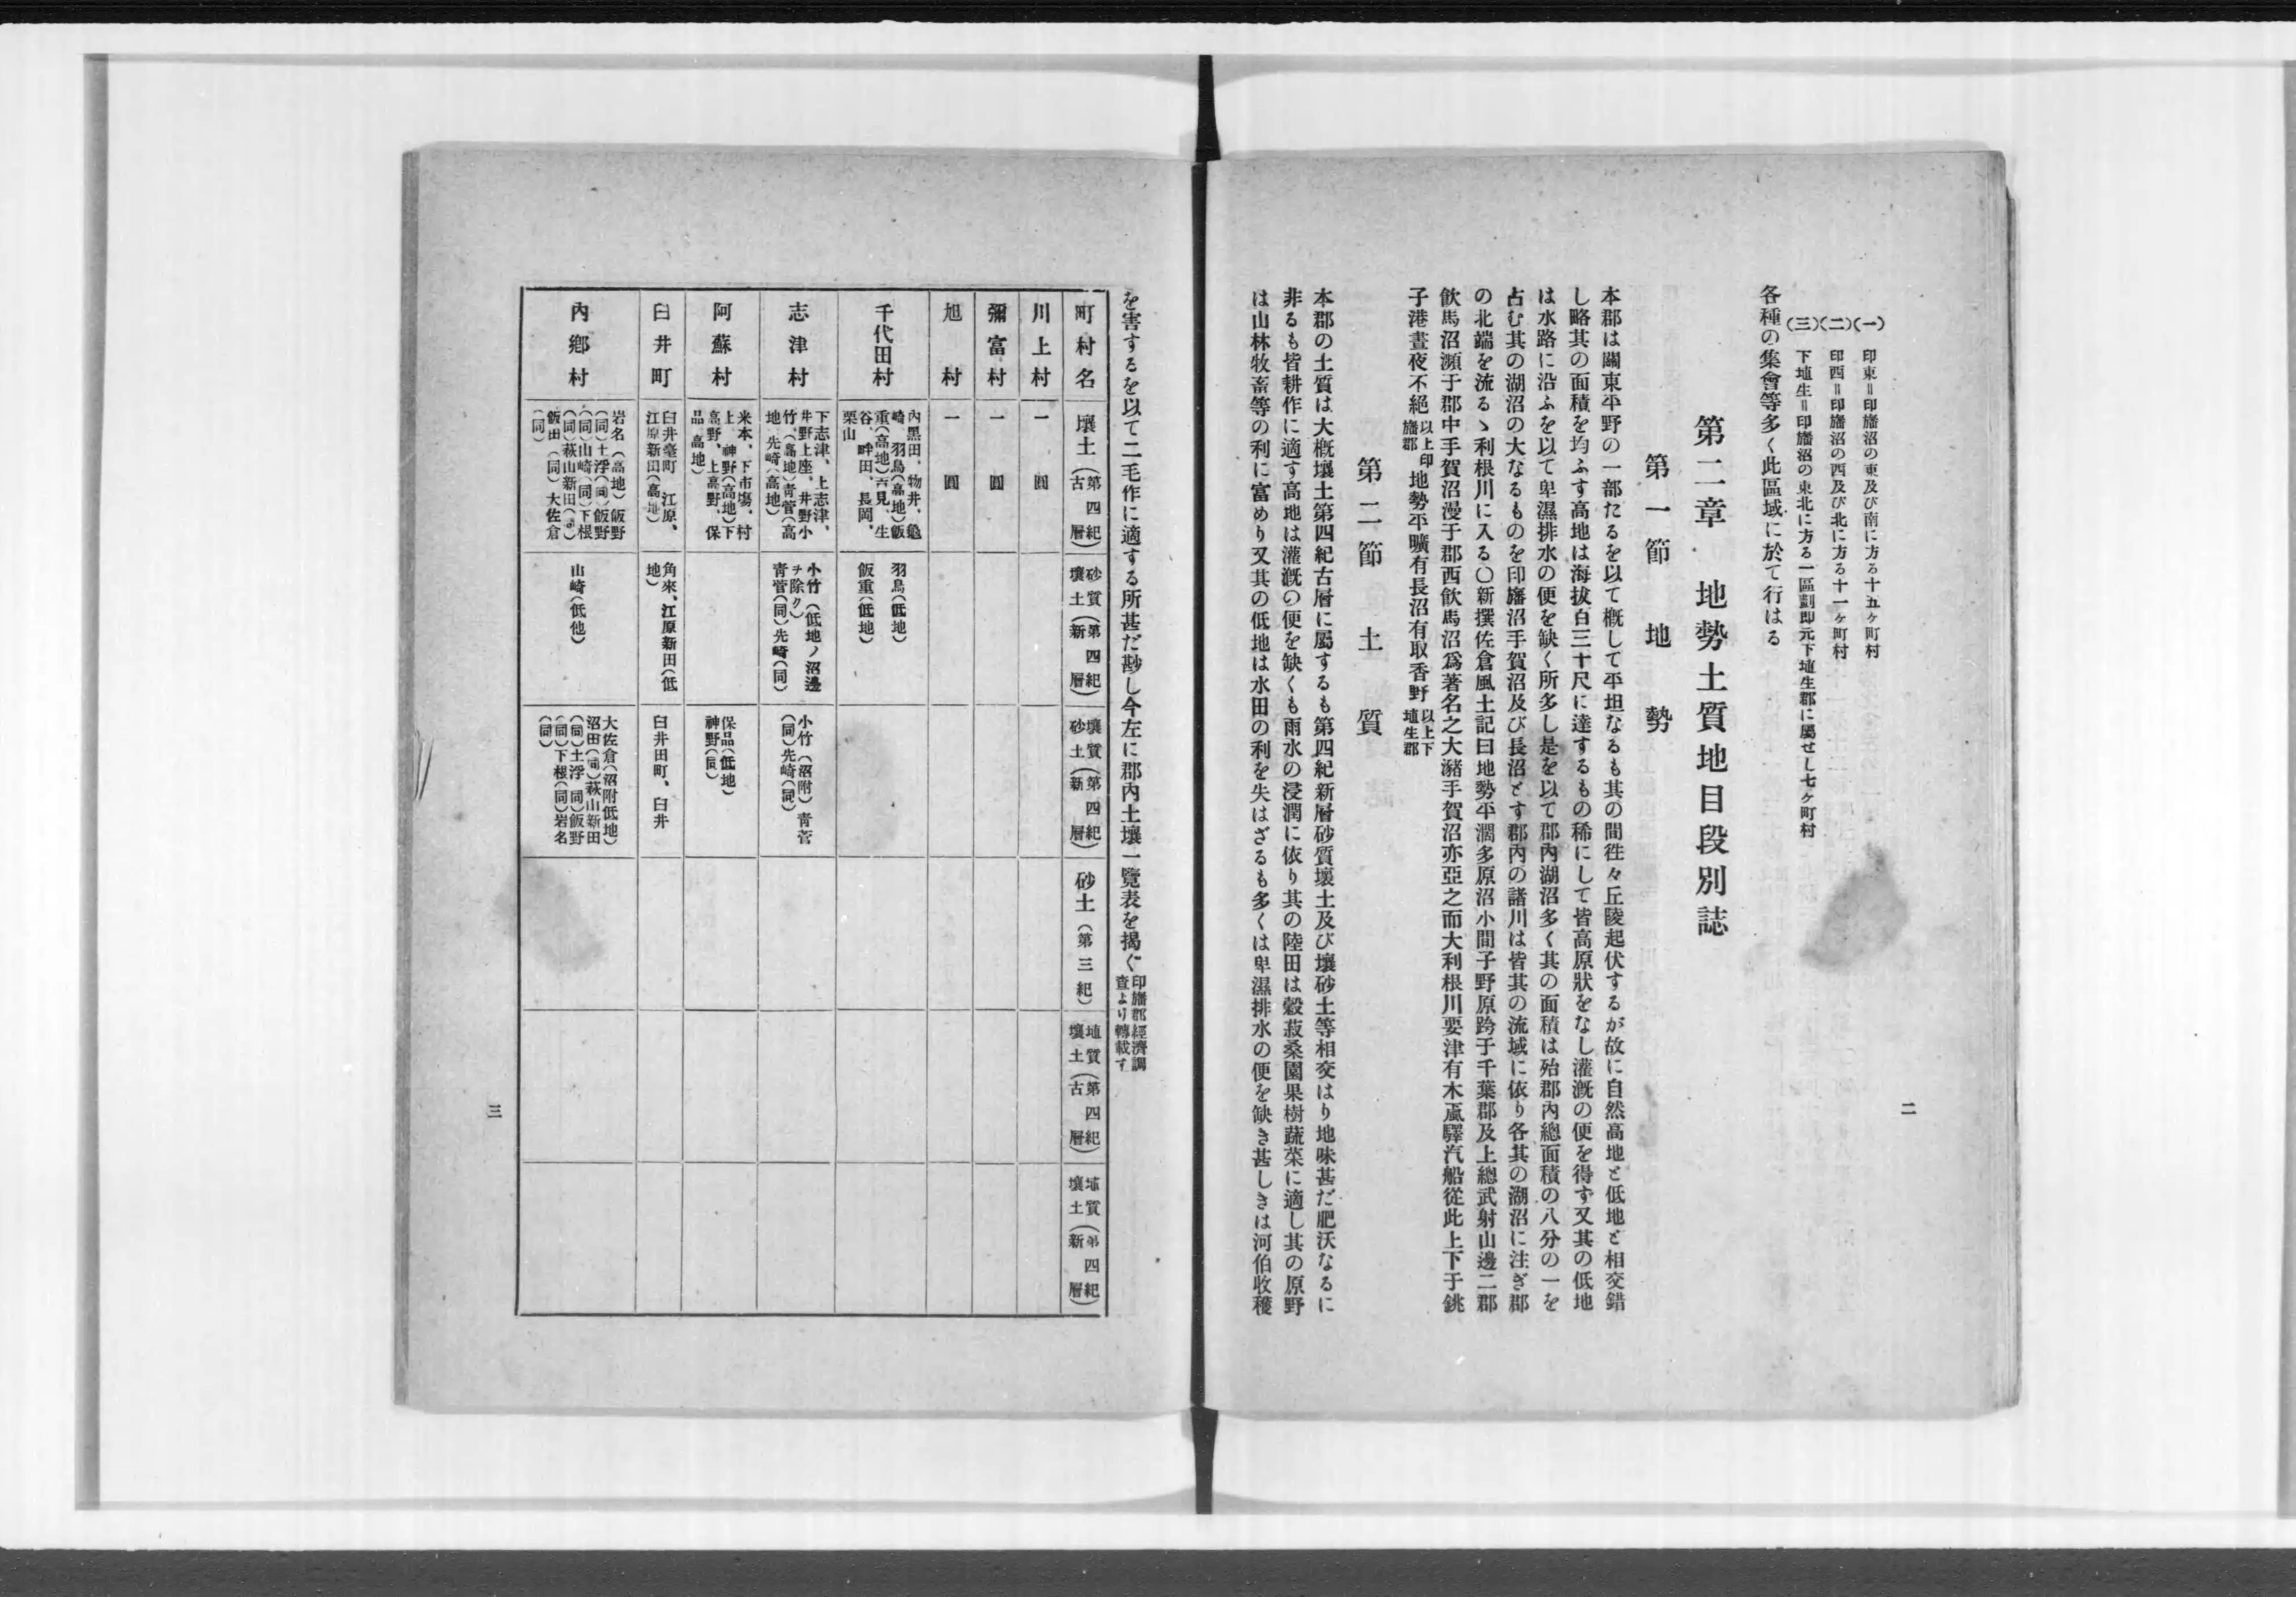 (一) 印東＝印旛沼の東及び南に方る十五ヶ町村
(二) 印西＝印旛沼の西及び北に方る十一ヶ町村
(三) 下埴生＝印旛沼の東北に方る一區劃卽元下埴生郡に屬せし七ヶ町村
各種の集會等多く此區域に於て行はる
第二章 地勢土質地目段別誌
第一節 地勢
本郡は關東平野の一部たるを以て概して平坦なるも其の間徃々丘陵起伏するが故に自然高地と低地と相交錯
し略其の面積を均ふす高地は海拔百三十尺に達するもの稀にして皆高原狀をなし灌漑の便を得ず又其の低地
は水路に沿ふを以て卑濕排水の便を缺く所多し是を以て郡內湖沼多く其の面積は殆郡內總面積の八分の一を
占む其の湖沼の大なるものを印旛沼手賀沼及び長沼とす郡內の諸川は皆其の流域に依り各其の湖沼に注ぎ郡
の北端を流るゝ利根川に入る〇新撰佐倉風土記曰地勢平濶多原沼小間子野原跨于千葉郡及上總武射山邊二郡
飮馬沼瀕于郡中手賀沼漫于郡西飮馬沼爲著名之大瀦手賀沼亦亞之而大利根川要津有木颪驛汽船從此上下于銚
子港晝夜不絕 以上印旛郡 地勢平曠有長沼有取香野 以上下埴生郡
第二節 土質
本郡の土質は大槪壤土第四紀古層に屬するも第四紀新層砂質壤土及び壤砂土等相交はり地味甚だ肥沃なるに
非るも皆耕作に適す高地は灌漑の便を缺くも雨水の浸潤に依り其の陸田は穀菽桑園果樹蔬菜に適し其の原野
は山林牧畜等の利に富めり又其の低地は水田の利を失はざるも多くは卑濕排水の便を缺き甚しきは河伯收穫
二
を害するを以て二毛作に適する所甚だ尠し今左に郡內土壤一覽表を揭ぐ 印旛郡經濟調査より轉載す
町村名 壤土(第四紀古層) 砂質壤土(第四紀新層) 壤質砂土(第四紀新層) 砂土(第三紀) 埴質壤土(第四紀古層) 埴質壤土(第四紀新層)
川上村 一圓
彌富村 一圓
旭村 一圓
千代田村
內黑田、物井、龜
崎、羽鳥(高地)飯
重(高地)吉見、生
谷、畔田、長岡、
栗山
羽鳥(低地)
飯重(低地)
志津村
下志津、上志津、
井野上座、井野小
竹、(高地)靑菅(高
地)先崎(高地)
小竹(低地ノ沼邊
ヲ除ク)
靑菅(同)先崎(同)
小竹(沼附)靑菅
(同)先崎(同)
阿蘇村
米本、下市塲、村
上、神野(高地)下
高野、上高野、保
品(高地)
保品(低地)
神野(同)
臼井町
臼井臺町、江原、
江原新田(高地)
角來、江原新田(低
地)
臼井田町、臼井
內鄕村
岩名(高地)飯野
(同)土浮(同)飯野
(同)山崎(同)下根
(同)萩山新田(同)
飯田(同)大佐倉
(同)
山崎(低他)
大佐倉(沼附低地)
沼田(同)萩山新田
(同)土浮(同)飯野
(同)下根(同)岩名
(同)
三